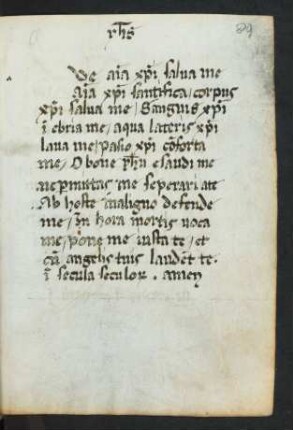 yhs
29
De aīa xp̄i salua me
Aīa xp̄i santifica / corpus
xp̄i salua me / Sanguis xp̄i
ī ebria me / aqua lateris xp̄i
laua me / pasio xp̄i cōforta
me / O bone yh̄u esaudi me
ne permittas me seperari a te
Ab hoste maligno defende
me / In hora mortis uoca
me / pone me iusta te / et
cū angelis tuis laudēt te.
ī secula seculor . amen